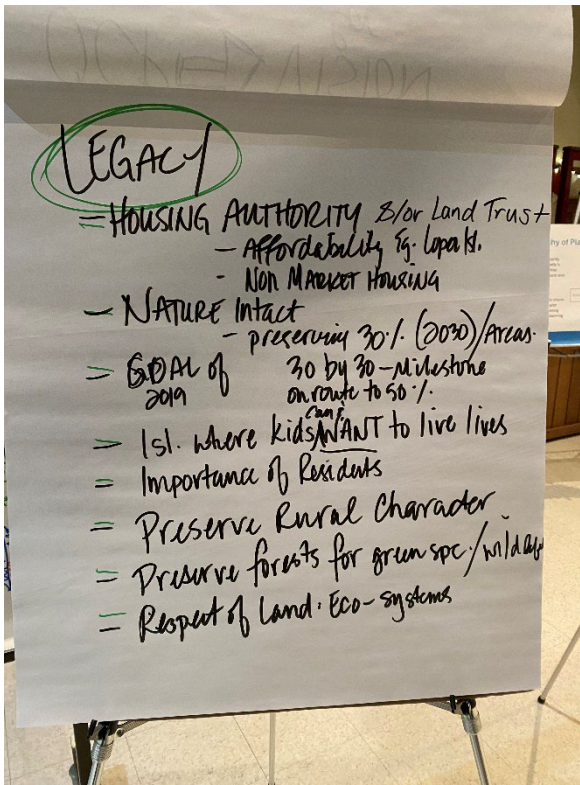 LEGACY
= HOUSING AUTHORITY &/or Land Trust
- Affordability Eg. Lopez Isl.
- Non Market Housing
- NATURE Intact
- preserving 30% (2030)/Areas.
= GOAL of 30 by 30 - Milestone
2019 on route to 50%.
can &
= Isl. where kids WANT to live lives
= Importance of Residents
= Preserve Rural Character
= Preserve forests for green spc./
= Respect of Land: Eco-systems
hy of Pla